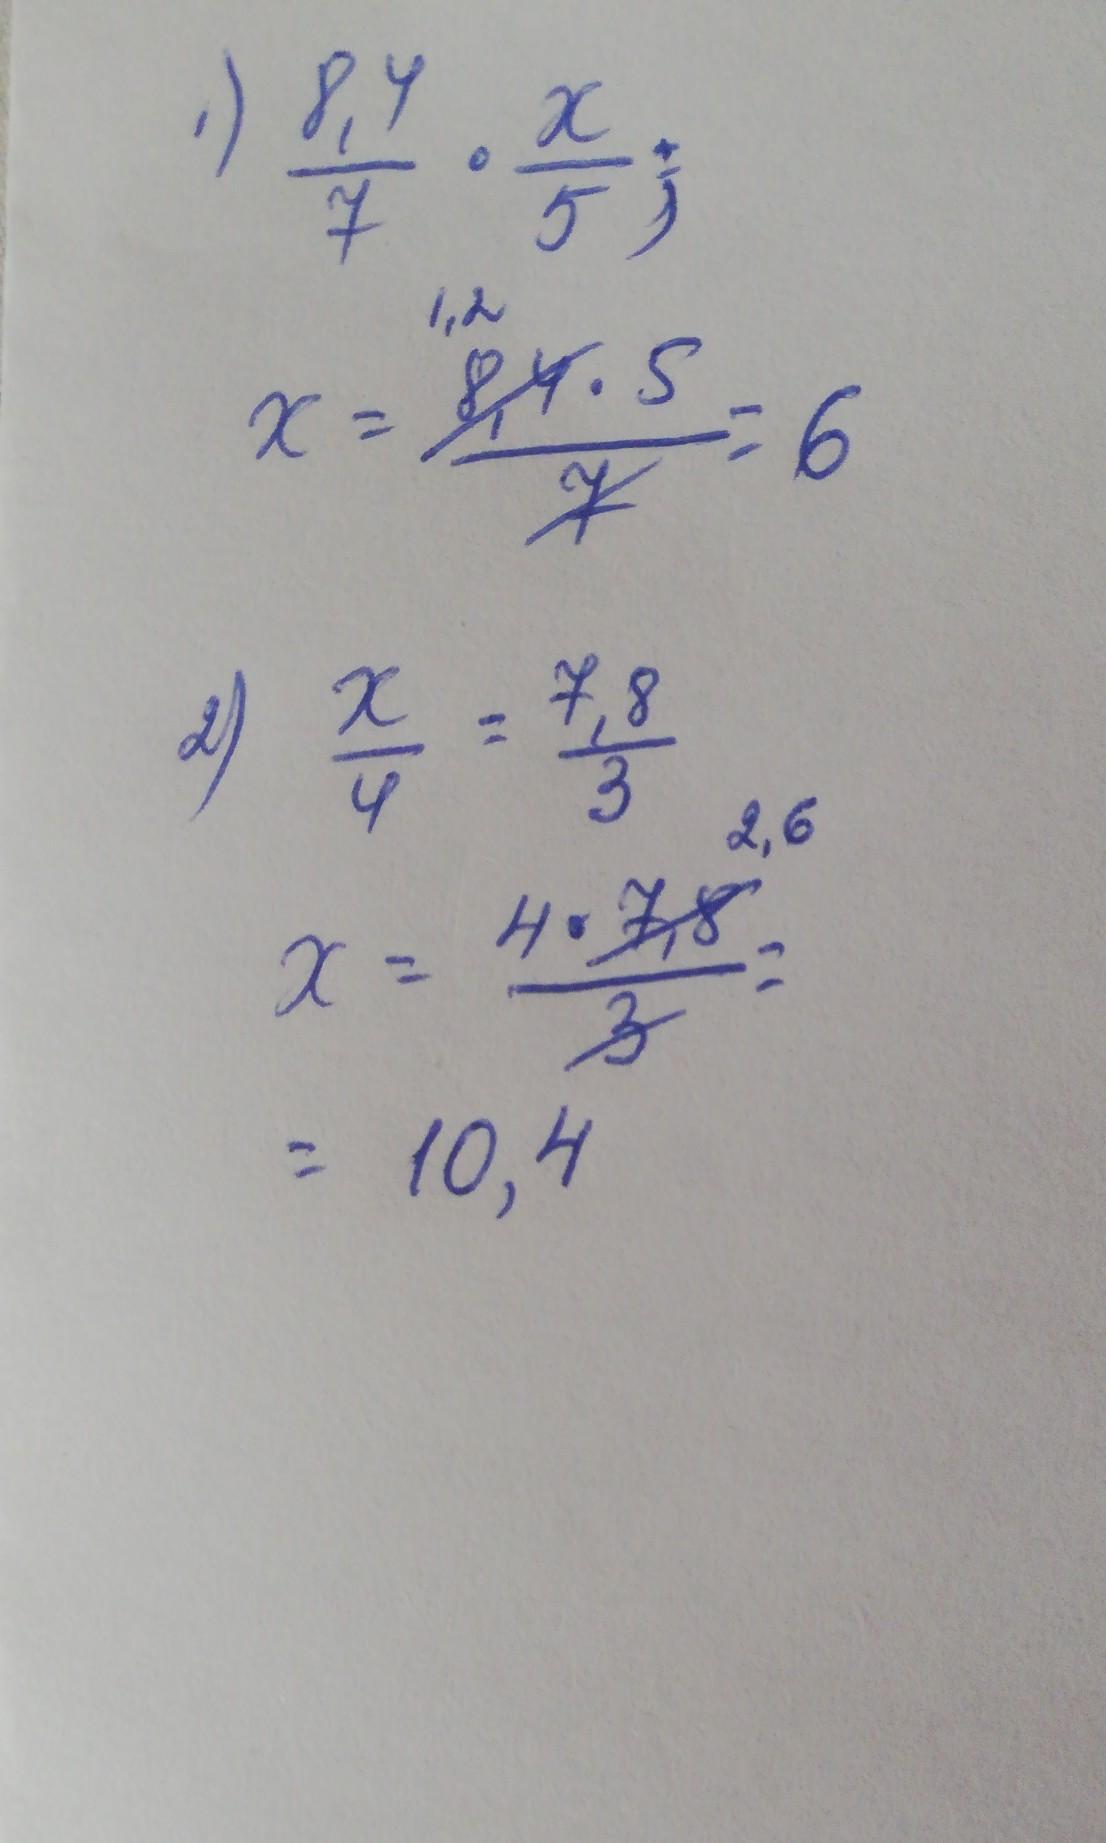 1) 8,4/7 · x/5;
1,2
x = 8,4 · 5/7 = 6
2) x/4 = 7,8/3
2,6
x = 4 · 7,8/3 =
= 10,4